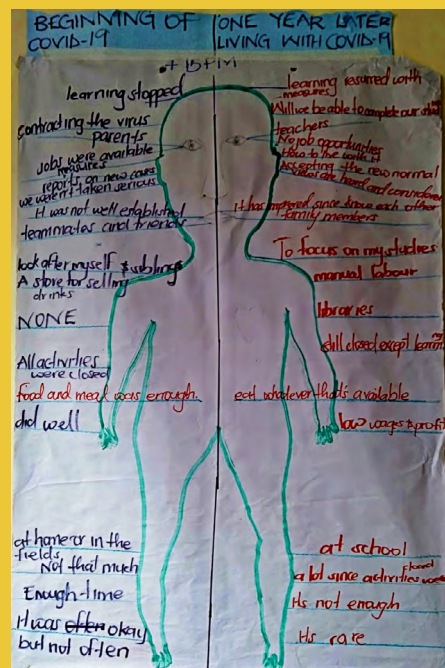 BEGINNING OF
COVID-19
ONE YEAR LATER
LIVING WITH COVID-19
learning stopped
contracting the virus
parents
Jobs were available
measures
reports on new cases
we weren't taken serious
It was not well established
teammates and friends
look after myself & siblings
A store for selling
drinks
NONE
All activities
were closed
food and meal was enough.
did well
at home or in the
fields
Not that much
Enough-time
It was often okay
but not often
learning resumed with
measures
Will we be able to complete our
teachers
No job opportunities
Accepting the new normal
are hard and
it has improved since know each other
family members
To focus on my studies
manual labour
libraries
still closed except learning
eat whatever that's available
low wages & profit
at school
a lot since activities closed
Its not enough
Its rare